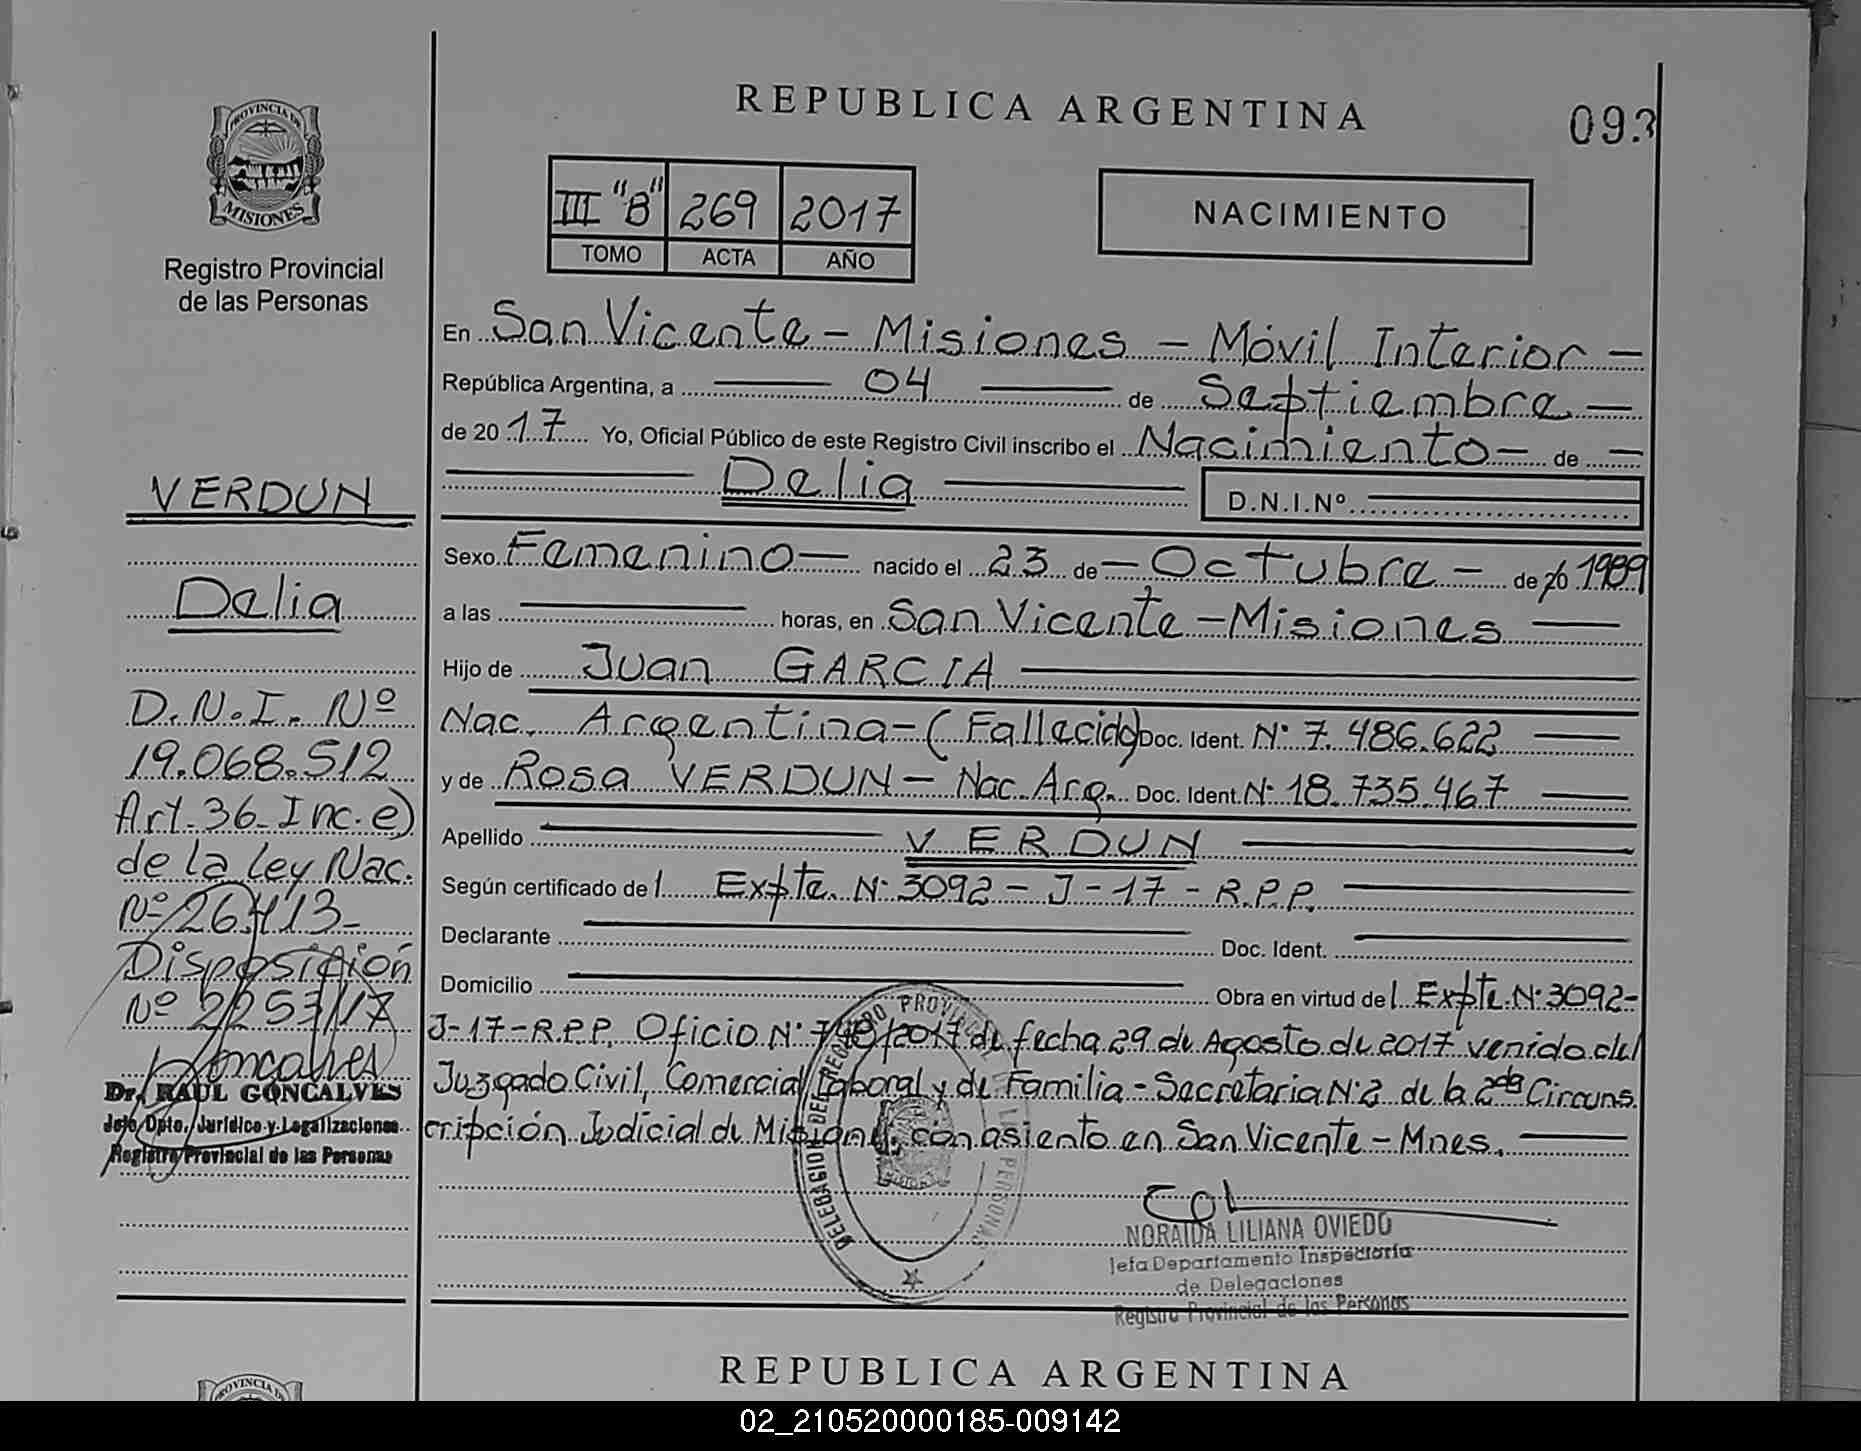 REPUBLICA ARGENTINA
PROVINCIA DE
MISIONES
Registro Provincial
de las Personas
III "B" 269 2017
TOMO ACTA AÑO
NACIMIENTO
En San Vicente - Misiones - Móvil Interior -
República Argentina, a 04 de Septiembre -
de 2017 Yo, Oficial Público de este Registro Civil inscribo el Nacimiento - de -
Delia D.N.I.Nº
Sexo Femenino - nacido el 23 de - Octubre - de 1989
a las horas, en San Vicente - Misiones
Hijo de Juan GARCIA
Nac. Argentina - (Fallecido) Doc. Ident. Nº 7.486.622
y de Rosa VERDUN - Nac. Arg. Doc. Ident. Nº 18.735.467
Apellido VERDUN
Según certificado de l Expte. Nº 3092 - J - 17 - R.P.P.
Declarante Doc. Ident.
Domicilio Obra en virtud del Expte. Nº 3092-
J-17-R.P.P. Oficio Nº 740/2017 de fecha 29 de Agosto de 2017 venido del
Juzgado Civil, Comercial, Laboral y de Familia - Secretaria Nº 2 de la 2da Circuns
cripción Judicial de Misiones, con asiento en San Vicente - Mnes.
VERDUN
Delia
D.N.I. Nº
19.068.512
Art. 36 - Inc. e)
de la ley Nac.
Nº 26413-
Disposición
Nº 2253/17
Goncalves
Dr. RAUL GONCALVES
Jefe Dpto. Jurídico y Legalizaciones
Registro Provincial de las Personas
DELEGACION DEL REGISTRO PROVINCIAL DE LAS PERSONAS
NORAIDA LILIANA OVIEDO
Jefa Departamento Inspectoría
de Delegaciones
Registro Provincial de las Personas
PROVINCIA DE
REPUBLICA ARGENTINA
02_210520000185-009142